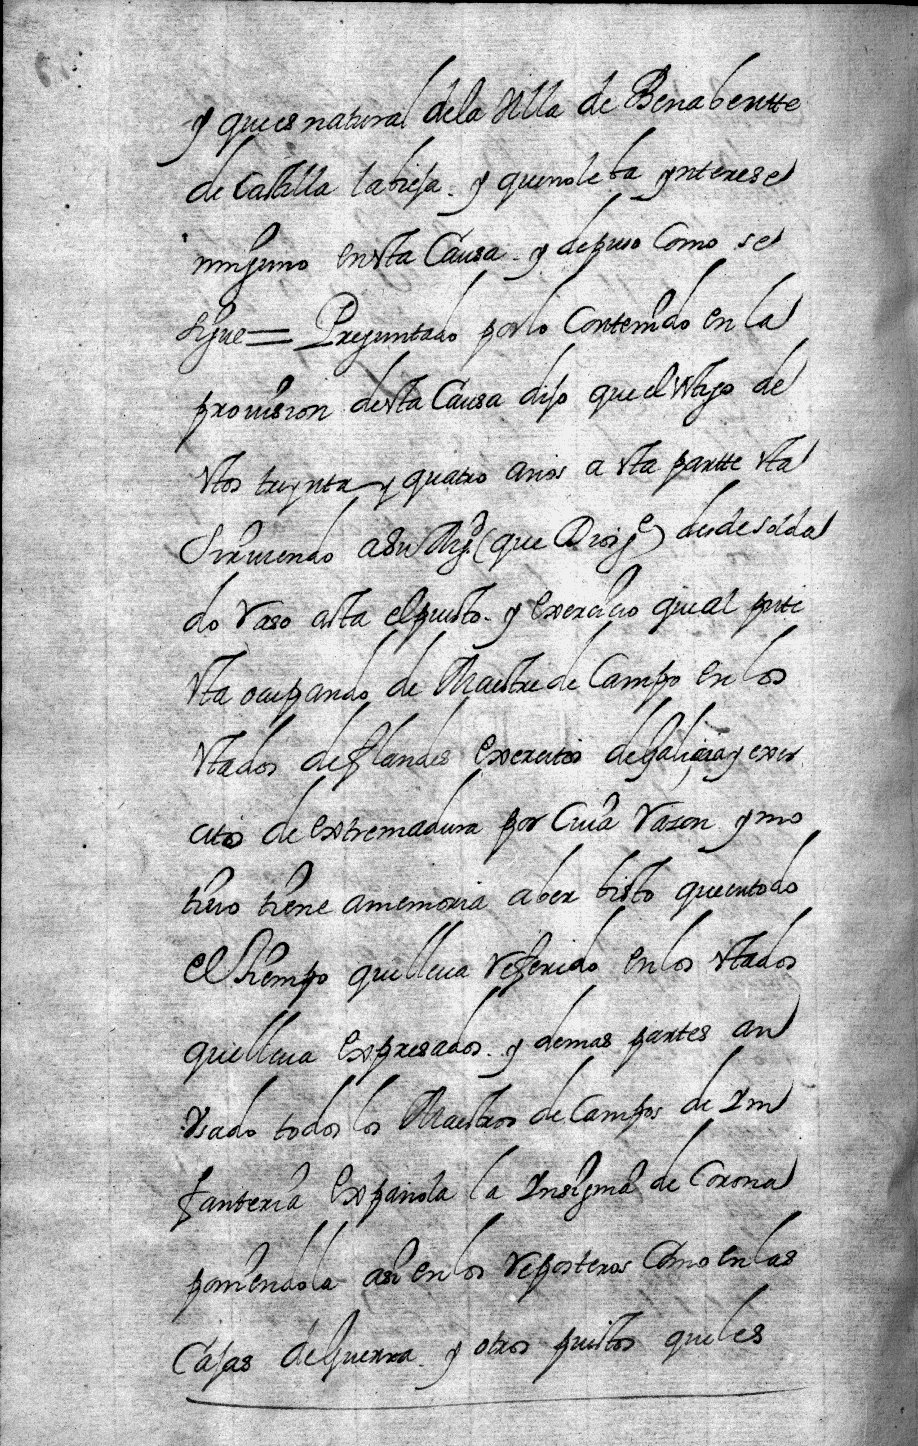 y que es natural dela Villa de Benabentte
de Castilla la bieja. y que no le ba ynterese
ninguno en esta Causa. y depuso Como se
sigue = Preguntado por lo Contenido en la
prouision desta Causa dijo que el testigo de
estos treynta y quatro años a esta partte esta
siruiendo a Su Mgd (que Dios ge) desde solda
do Raso asta el puesto. y exercicio que al pnte
esta ocupando de Maestre de Campo en los
estados de flandes exercitos de Galicia y exer
cito de extremadura por Cuia Razon y mo
tiuo tiene a memoria aber bisto que en todo
el tiempo que lleua Referido en los estados
que lleua expresados. y demas partes an
Vsado todos los Maestros de Campos de Ym
fanteria española la Ynsignia de Corona
poniendola asi en los Reposteros Como en las
Cajas de Guerra. y otros puestos que les